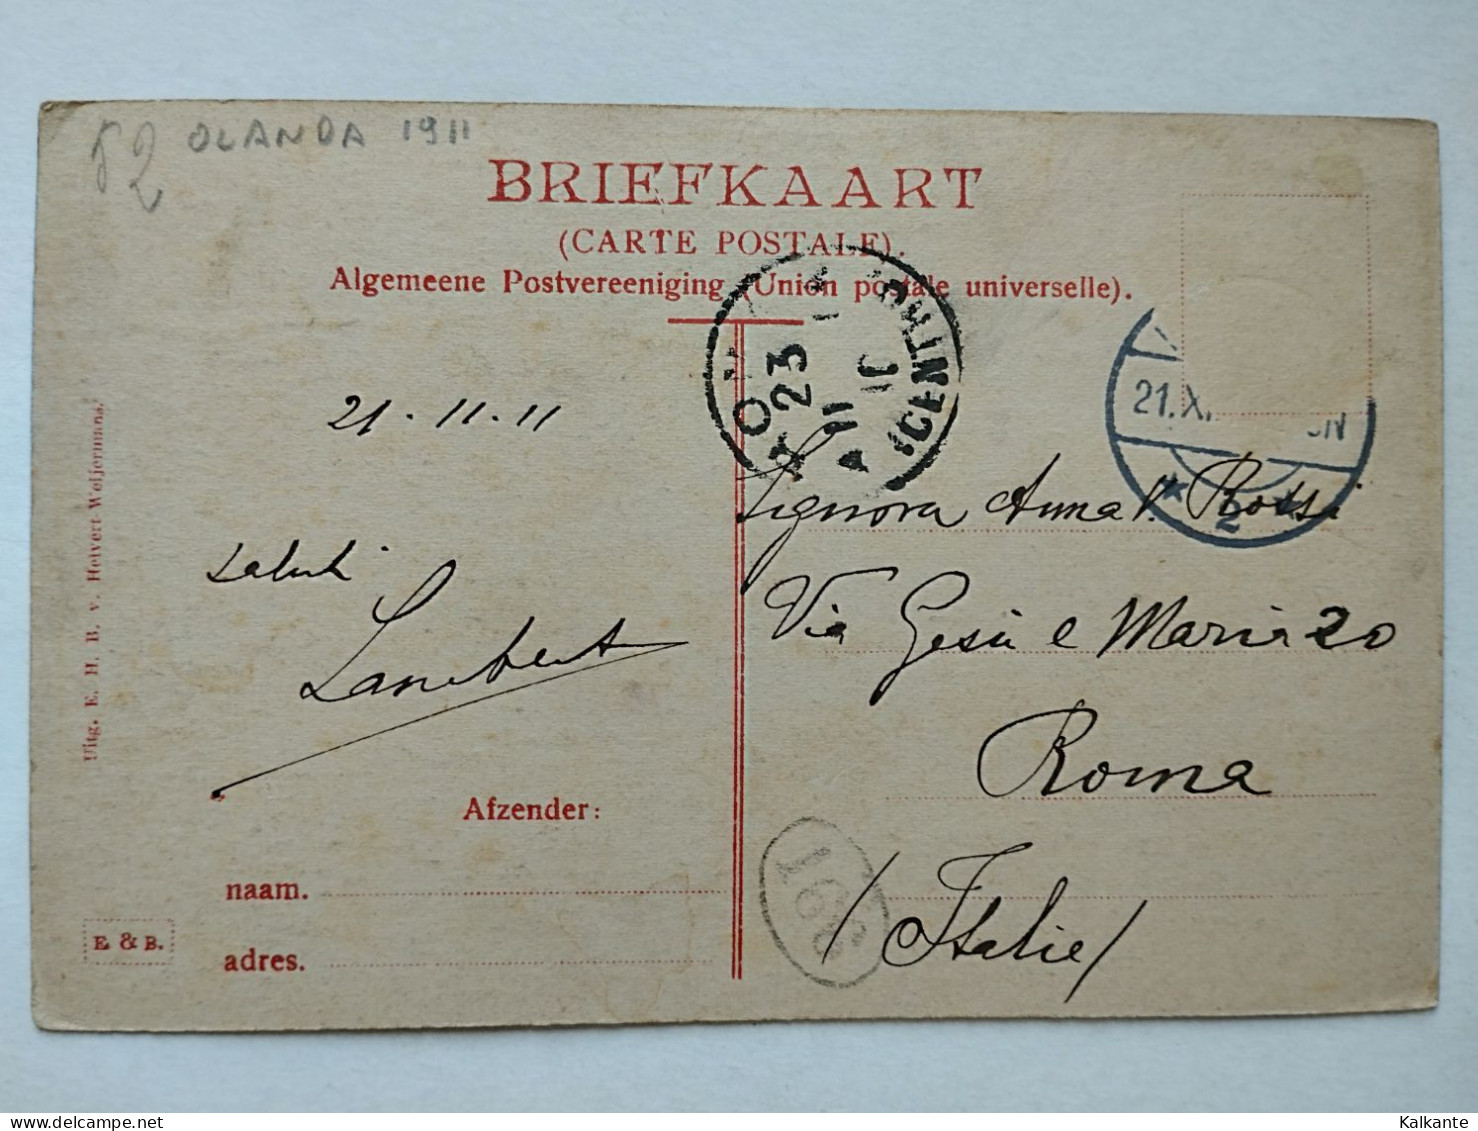 52 OLANDA 1911
BRIEFKAART
(CARTE POSTALE).
Algemeene Postvereeniging (Union postale universelle).
21.X
2
23
11
21-11-11
Signora Anna V. Rossi
Via Gesù e Maria 20
Roma
/Italie/
saluti
Lambert
Afzender:
naam.
adres.
E & B.
Uitg. E. H. B. v. Hetvert-Weijermans.
166
Kalkante